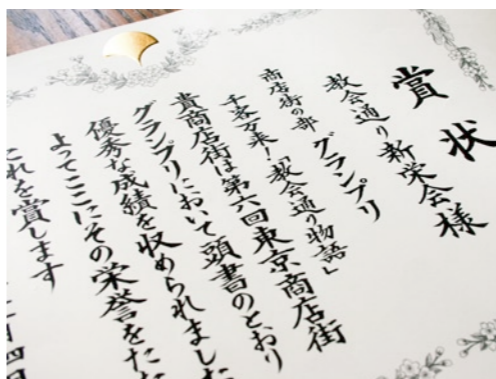 賞状
教会通り新栄会様
グランプリ
商店街の部
千客万来!「教会通り物語」
貴商店街は第六回東京商店街
グランプリにおいて頭書のとおり
優秀な成績を収められました
よってここにその栄誉をた
これを賞します
月四